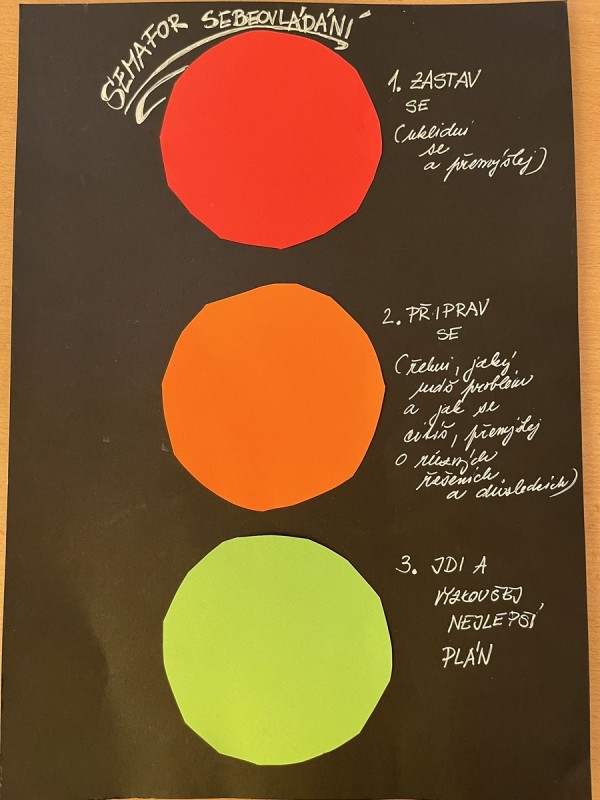 SEMAFOR SEBEOVLÁDÁNÍ
1. ZASTAV
SE
(uklidni
se
a přemýšlej)
2. PŘIPRAV
SE
(řekni, jaký
máš problém
a jak se
cítíš, přemýšlej
o různých
řešeních
a důsledcích)
3. JDI A
VYZKOUŠEJ
NEJLEPŠÍ
PLÁN